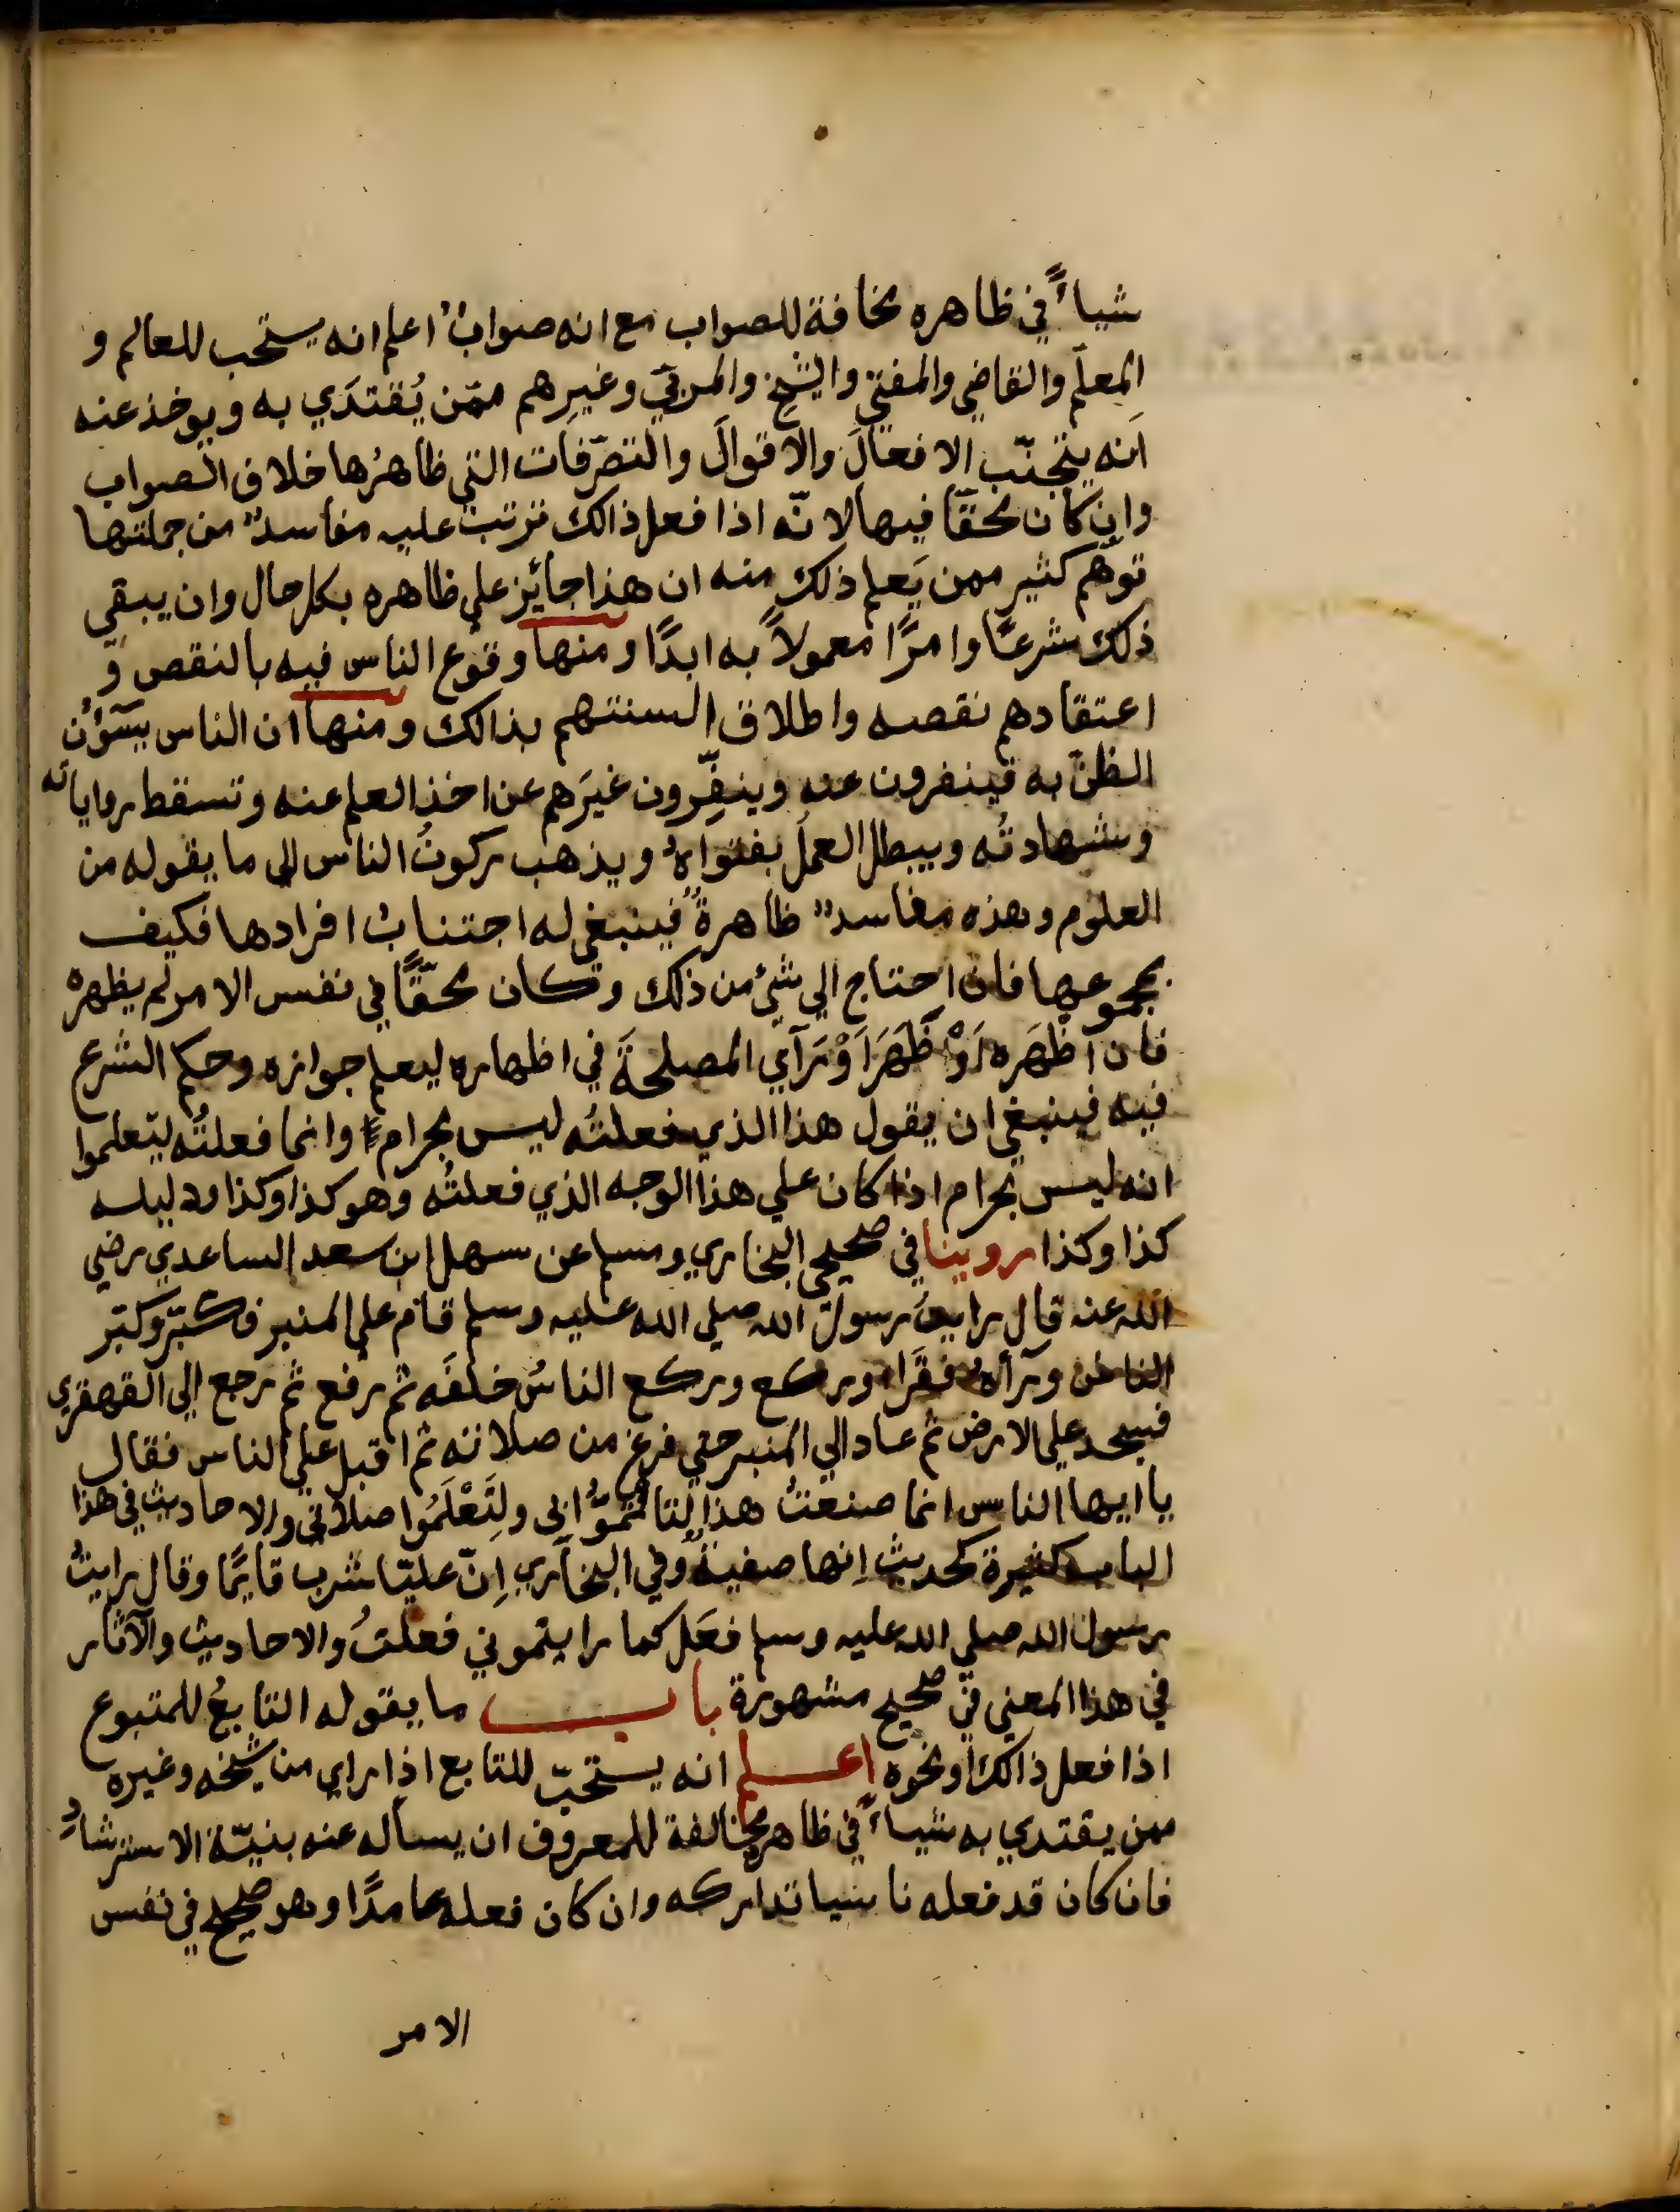 شياءً في ظاهره مخافة للصواب مع انه صوابٌ اعلم انه يستحب للعالم و
المعلّم والقاضي والمفتي والشيخ والمربّي وغيرِهم ممّن يُقتدَي به ويوخذ عنه
اَنه يتجنّب الافعالَ والاقوالَ والتصرّفات التي ظاهرُها خلاف الصواب
وان كان محقّا فيها لانّه اذا فعل ذالك ترتبت عليه مفاسدٌ من جملتها
توهّم كثير ممن يَعلم ذلك منه ان هذا جائز علي ظاهره بكل حال وان يبقي
ذلك شرعًا وامرًا معمولاً به ابدًا ومنها وقوع الناس فيه بالنقص و
اعتقادهم نقصه واطلاق السنتهم بذالك ومنها ان الناس يسَوؤُن
الظنّ به فينفرون عنه وينفِّرون غيرَهم عن اخذ العلم عنه وتسقط رواياته
وشهادتُه ويبطل العملُ بفتواهُ ويذهب ركونُ الناس الي ما يقوله من
العلوم وهذه مفاسدٌ ظاهرةٌ فينبغي له اجتنابُ افرادها فكيف
بمجموعها فان احتاج الي شئ من ذلك وكان محقّقًا في نفس الامر لم يظهرهُ
فان اَظهَره اَوْ ظَهَرَ اَوْ رَآي المصلحةَ في اظهاره ليعلم جوازه وحكم الشرع
فيه فينبغي ان يقول هذا الذي فعلتُه ليس بحرامٍ وانما فعلتُه ليتعلموا
انه ليس بحرام اذا كان علي هذا الوجه الذي فعلتُه وهو كذا وكذا ودليله
كذا وكذا روينا في صحيحي البخاري ومسلم عن سهل ابن سعد الساعدي رضي
الله عنه قال رايتُ رسول الله صلي الله عليه وسلم قام علي المنبر فكبّر وكبّر
الناس ورآه فقَرَا وركع وركع الناسُ خلفَه ثم رفع ثم رجع الي القهقري
فسجد علي الارض ثم عاد الي المنبر حتي فرغ من صلاته ثم اقبل علي الناس فقال
يا ايها الناس انما صنعتُ هذا لتاتمّوُّا بي ولِتَعْلَمُوا صلاتي والاحاديث في هذا
الباب كثيرة كحديث اِنها صفيةُ وفي البخاري اِنّ عليّا شرب قايمًا وقال رايتُ
رسول الله صلي الله عليه وسلم فعَل كما رايتموني فعلتُ والاحاديث والآثار
في هذا المعني في صحيح مشهورة باب ما يقوله التابعُ للمتبوع
اذا فعل ذالك او نحوه اعلم انه يستحبّ للتابع اذا راي من شيخه وغيره
ممن يقتدي به شياءً في ظاهره مخالفة للمعروف ان يساله عنه بنيّة الاسترشادِ
فان كان قد فعله ناسيا تداركه وان كان فعله عامدًا وهو صحيح في نفس
الامر